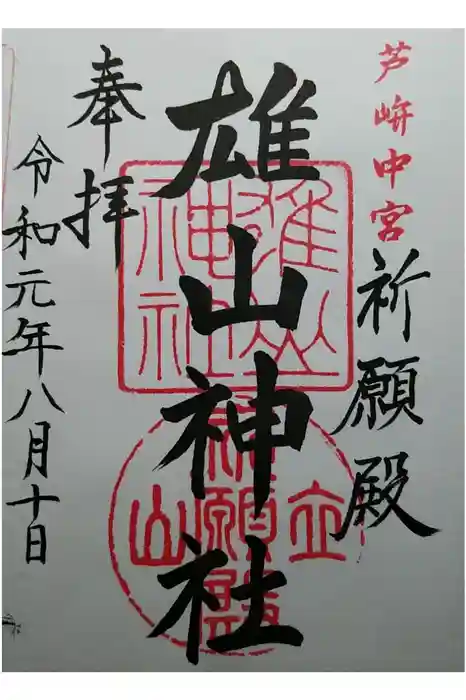 芦峅中宮
祈願殿
雄山神社
奉拝
令和元年八月十日
雄山
神社
立山
祈願殿